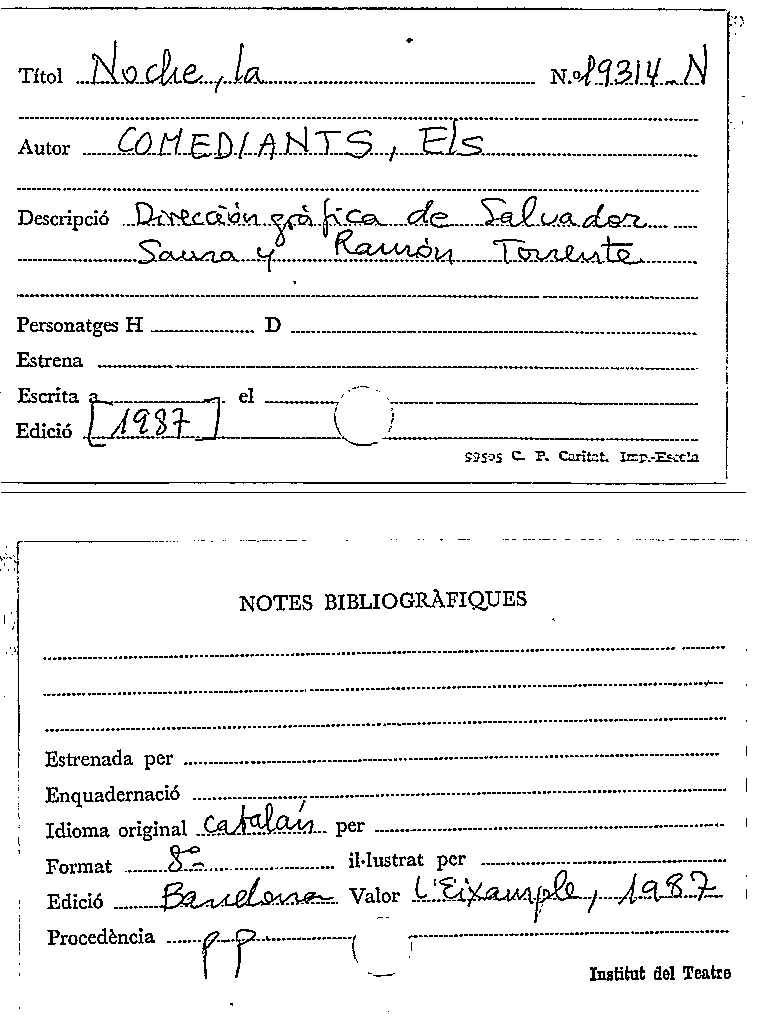 Títol Noche, la N.º 19314-N
Autor COMEDIANTS, Els
Descripció Dirección gráfica de Salvador
Saura y Ramón Torrente
Personatges H D
Estrena
Escrita a el
Edició [1987]
C. P. Caritat. Imp.-Escola
NOTES BIBLIOGRÀFIQUES
Estrenada per
Enquadernació
Idioma original catalán per
Format 8º il·lustrat per
Edició Barcelona Valor L'Eixample, 1987
Procedència pp
Institut del Teatre